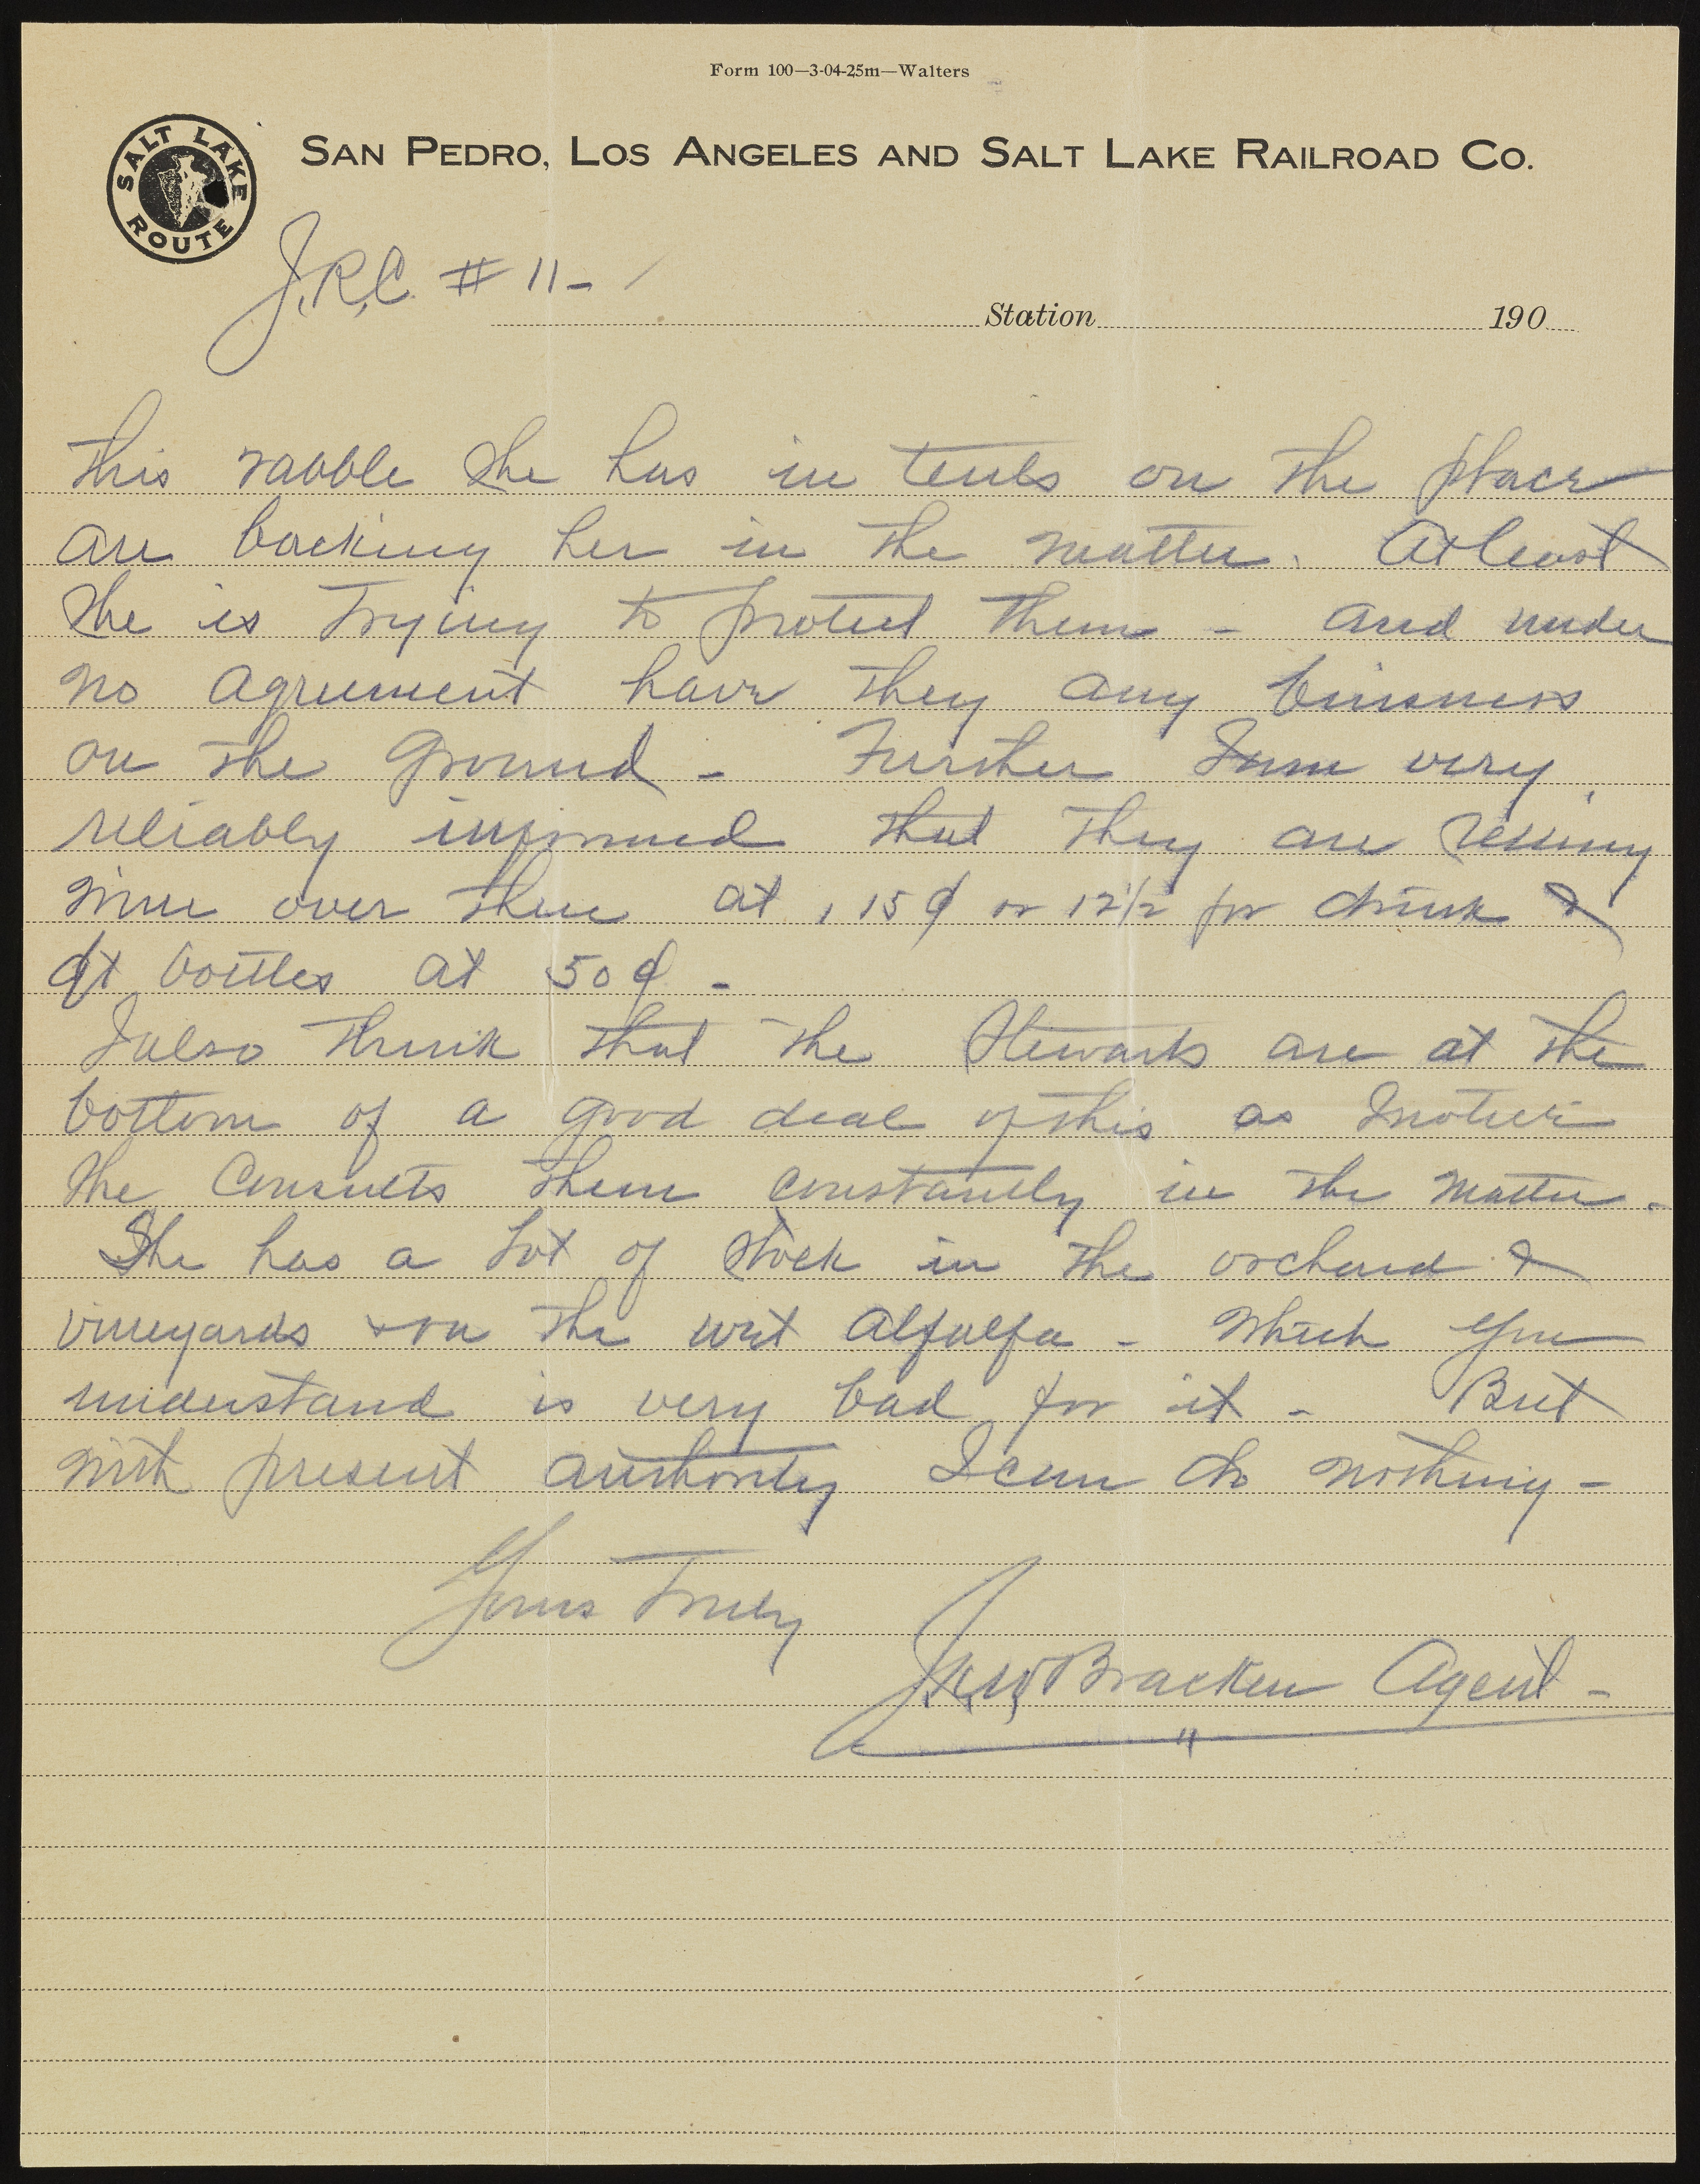 Form 100—3-04-25m—Walters
SALT LAKE ROUTE
SAN PEDRO, LOS ANGELES AND SALT LAKE RAILROAD CO.
J.R.C. # 11-
Station 190
this rabble she has in tents on the place
are backing her in the matter. At least
she is trying to protect them - and under
no agreement have they any business
on the ground - Further I am very
reliably informed that they are selling
wine over there at , 15¢ or 12½ for drink &
qt bottles at 50¢ -
I also think that the Stewarts are at the
bottom of a good deal of this as I notice
she consults them constantly in the matter -
She has a lot of stock in the orchard &
vineyards & on the wet alfalfa - which you
understand is very bad for it - But
with present authority I can do nothing -
Yours Truly
Bracken Agent -
"